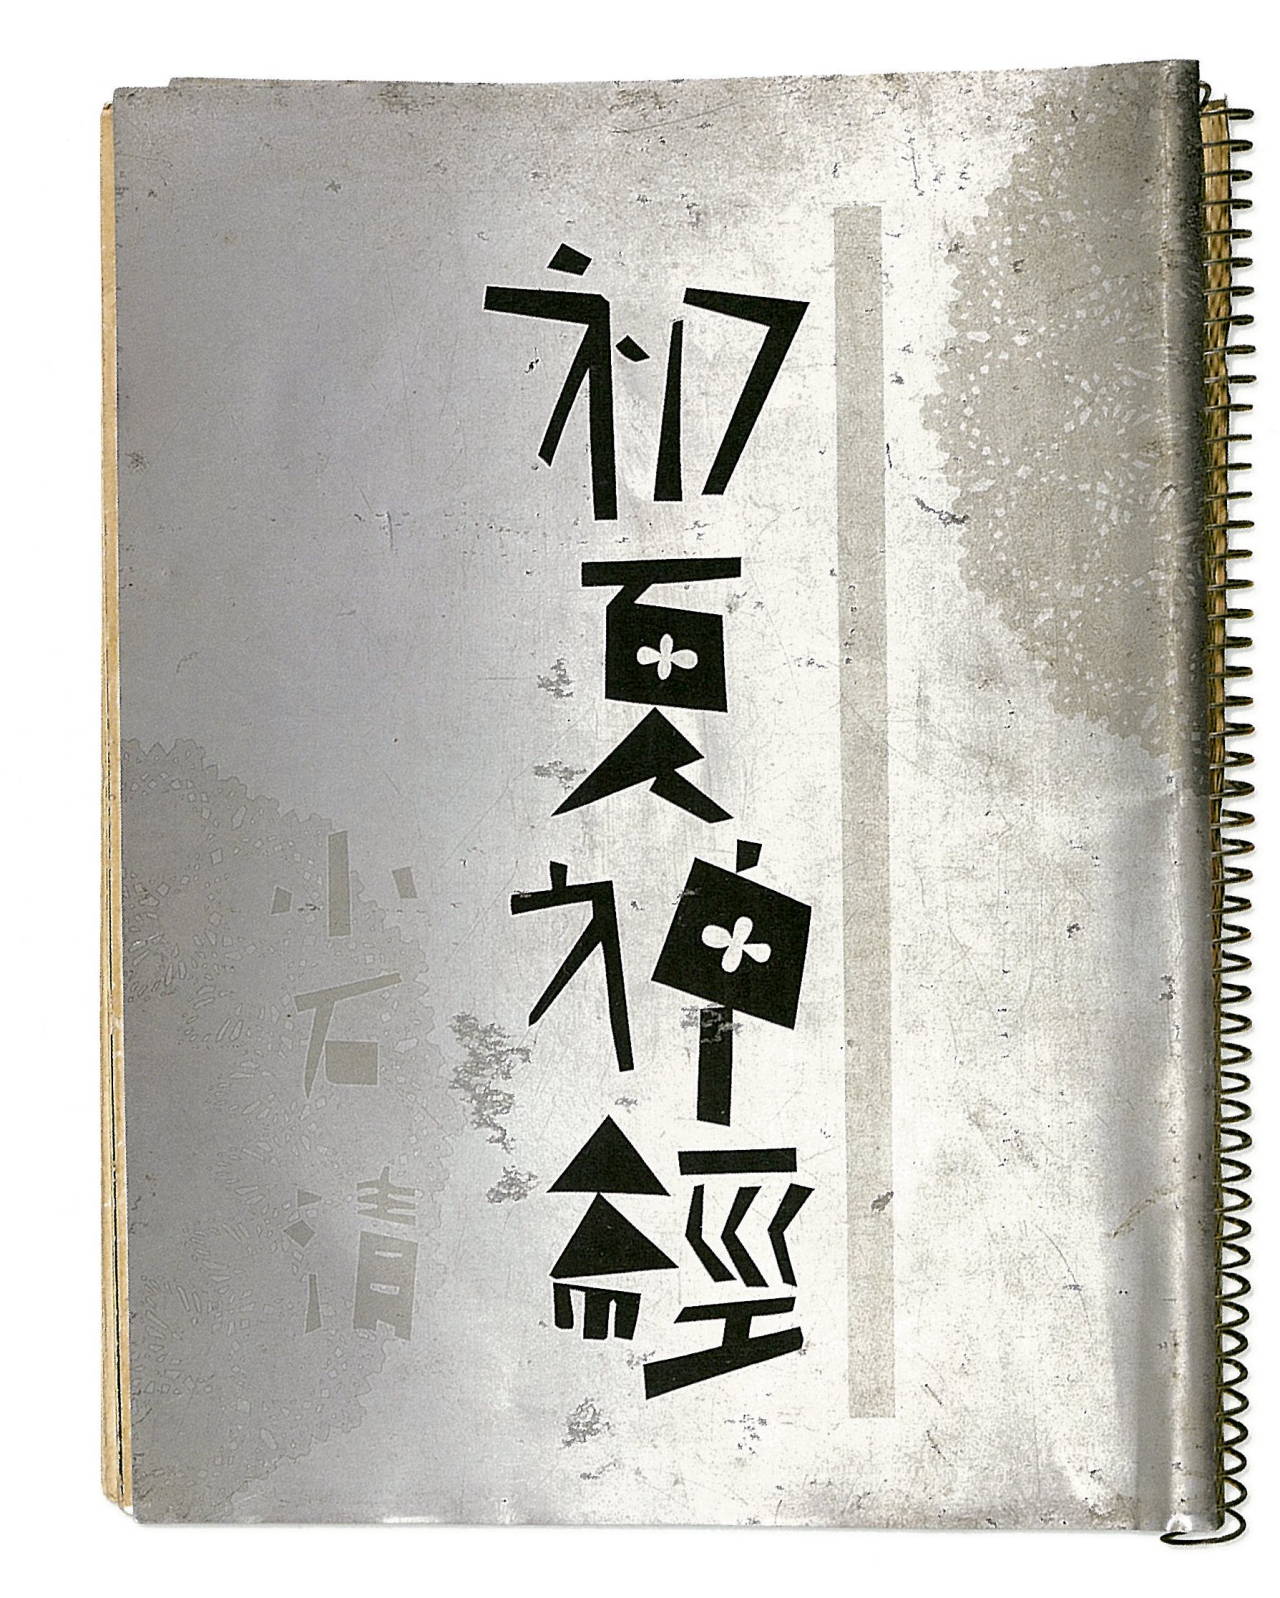 初夏神經
小石清